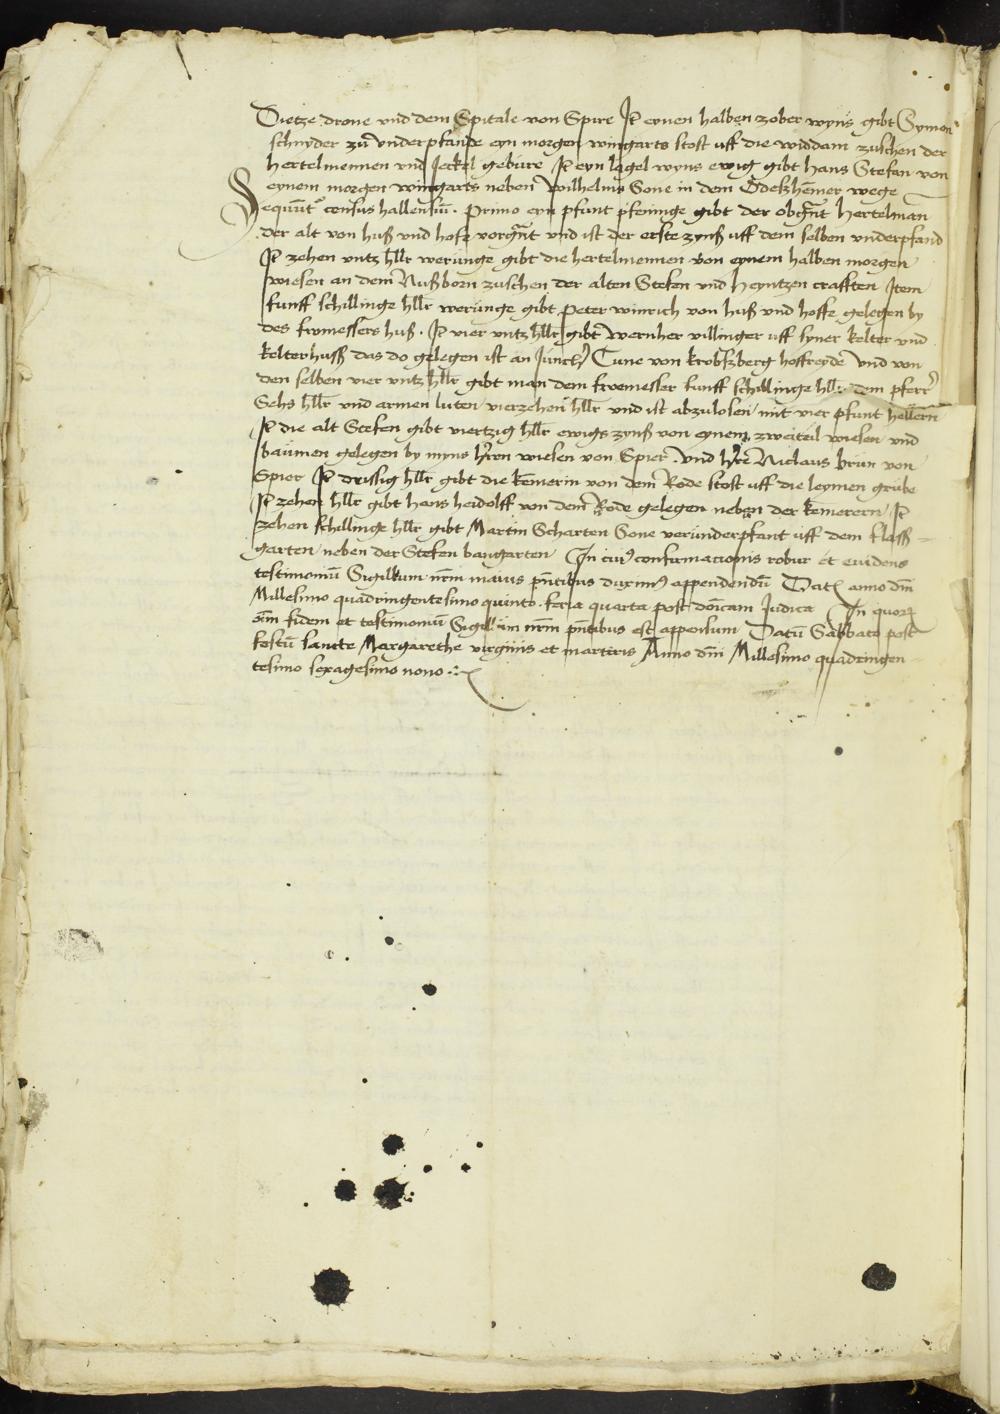 Dietze drone vnd dem Spitale von Spire Jt eynen halben zober wyns gibt Symon
schnyder zu vnderpfande eyn morgen wingarts stost uff die widdam zuschen der
hertelmennen vnd Jeckel gebure Jt eyn legel wyns ewig gibt hans Stefan von
eynem morgen wingarts neben Wilhelms Sone in dem Odeßhemer wege
Sequntr census hallensiu. Primo eyn pfunt pfeninge gibt der obgnt hertelman
der alt von huß vnd hofe vorgnt vnd ist der erste zynß uff dem selben vnderpfand
Jt zehen vntz hllr werunge gibt die hertelmennen von eynem halben morgen
wiesen an dem Nußborn zuschen der alten Stefen vnd heyntzen crafften Jtem
funff schillinge hllr werunge gibt Peter winrich von huß vnd hoffe gelegen by
des fromessers huß. Jt vier vntz hllr gibt wernher villinger uff syner kelter vnd
kelterhuß das do gelegen ist an Junckr Cune von krobßberg hoffreyde vnd von
den selben vier vntz hllr gibt man dem froemesser funff schillinge hllr dem pferr
Sehs hllr vnd armen luten vierzehen hllr vnd ist abzulosen mit vier pfunt hellern
Jt die alt Stefen gibt viertzig hllr ewigs zynß von eynem zweiteil wiesen vnd
baumen gelegen by myns hrn wiesen von Spier. vnd hre Niclaus brun von
Spier Jt drissig hllr gibt die kemerin von dem Rode stost uff die leymen grube
Jt zehen hllr gibt hans heidolff von dem Rode gelegen neben der kemerern Jt
zehen schillinge hllr gibt Martin Scharten Sone verunderpfant uff dem flaß-
garten neben der Stefen bangarten Jn cui9 confirmacionis robur et euidens
testimoniu Sigillum nrm maius pntibus duximus appendendu Dat anno dni
Millesimo quadringentesimo quinto. feria quarta post donicam Judica Jn quor
om fidem et testimoniu Sigillum nrm pntibus est appensum Datu Sabbato post
festu sancte Margarethe virginis et martiris Anno dni Millesimo quadringen
tesimo sexagesimo nono